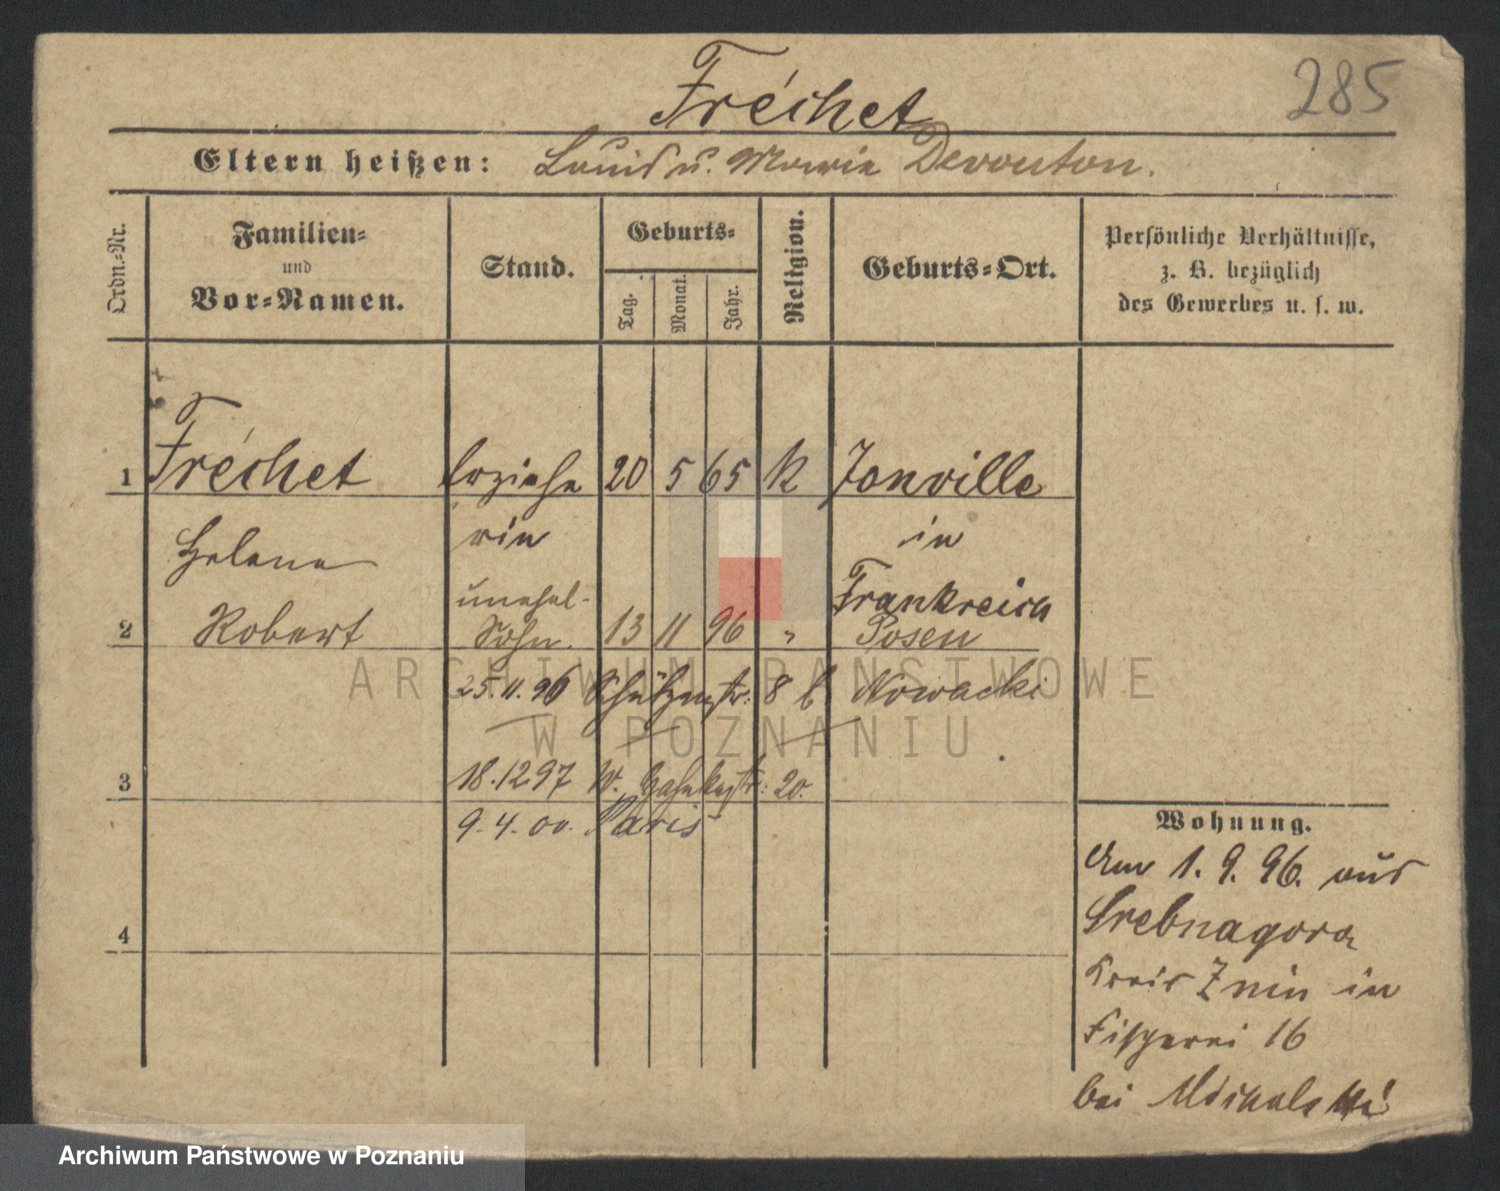 285
Fréchet
Eltern heißen: Louis u. Marie Devouton.
Ordn.-Nr.
Familien-
und
Vor-Namen.
Stand.
Geburts-
Tag.
Monat.
Jahr.
Religion.
Geburts-Ort.
Persönliche Verhältnisse,
z. B. bezüglich
des Gewerbes u. s. w.
1 Fréchet Erziehe 20 5 65 K Jonville
rin in
Helene Frankreich
unehel.
2 Robert Sohn. 13 11 96 " Posen
25.11.96 Schützenstr. 8 b Nowacki
3 18.12.97 W. 20.
9.4.00. Paris
4
Wohnung.
Am 1.9.96. aus
Srebnagora
Kreis Znin in
Fischerei 16
bei Michalski
ARCHIWUM PAŃSTWOWE
W POZNANIU
Archiwum Państwowe w Poznaniu